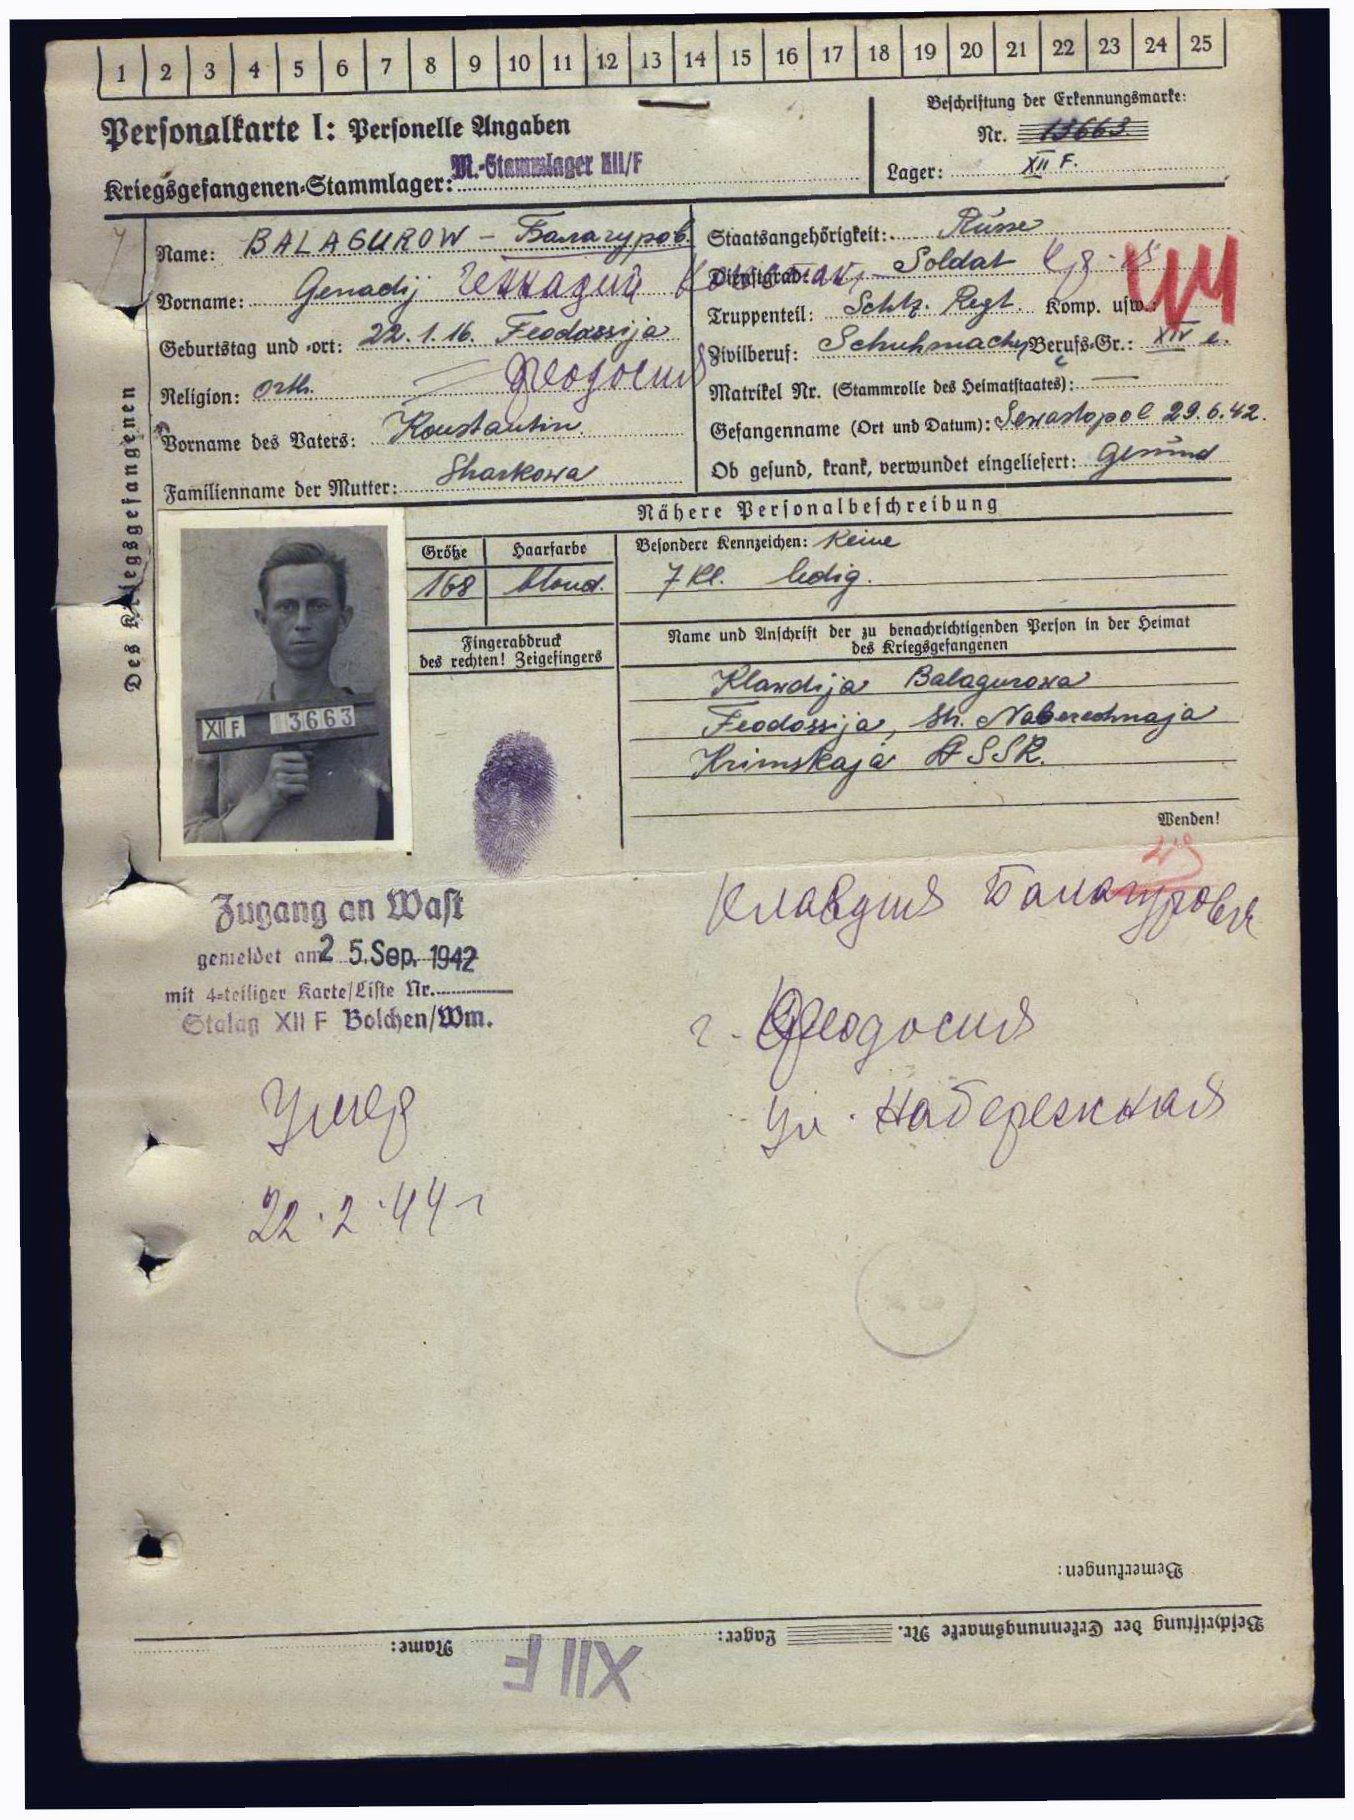 1 2 3 4 5 6 7 8 9 10 11 12 13 14 15 16 17 18 19 20 21 22 23 24 25
Personalkarte I: Personelle Angaben
Kriegsgefangenen-Stammlager: M.-Stammlager XII/F
Beschriftung der Erkennungsmarke:
Nr. 13663
Lager: XII F.
Des Kriegsgefangenen
Name: BALAGUROW – Балагуров
Vorname: Genadij Геннадий
Geburtstag und -ort: 22.1.16. Feodossija
Religion: orth. Феодосия
Vorname des Vaters: Konstantin
Familienname der Mutter: Sharkowa
Staatsangehörigkeit: Russe
Dienstgrad: Soldat
Truppenteil: Schtz. Regt. Komp. usw.:
Zivilberuf: Schuhmacher Berufs-Gr.: XIV e.
Matrikel Nr. (Stammrolle des Heimatstaates): —
Gefangenname (Ort und Datum): Sewastopol 29.6.42.
Ob gesund, krank, verwundet eingeliefert: Gesund
Nähere Personalbeschreibung
Größe Haarfarbe
168 blond.
Besondere Kennzeichen: Keine
7 Kl. ledig.
XII F 13663
Fingerabdruck
des rechten! Zeigefingers
Name und Anschrift der zu benachrichtigenden Person in der Heimat
des Kriegsgefangenen
Klawdija Balagurowa
Feodossija, Str. Naberechnaja
Krimskaja ASSR.
Wenden!
Zugang an Wast
gemeldet am 25. Sep. 1942
mit 4-teiliger Karte/Liste Nr.
Stalag XII F Bolchen/Wm.
Клавдия Балагурова
г. Феодосия
ул. Набережная
Умер
22.2.44 г
Bemerkungen:
Beschriftung der Erkennungsmarke Nr. Lager: Name:
XII F